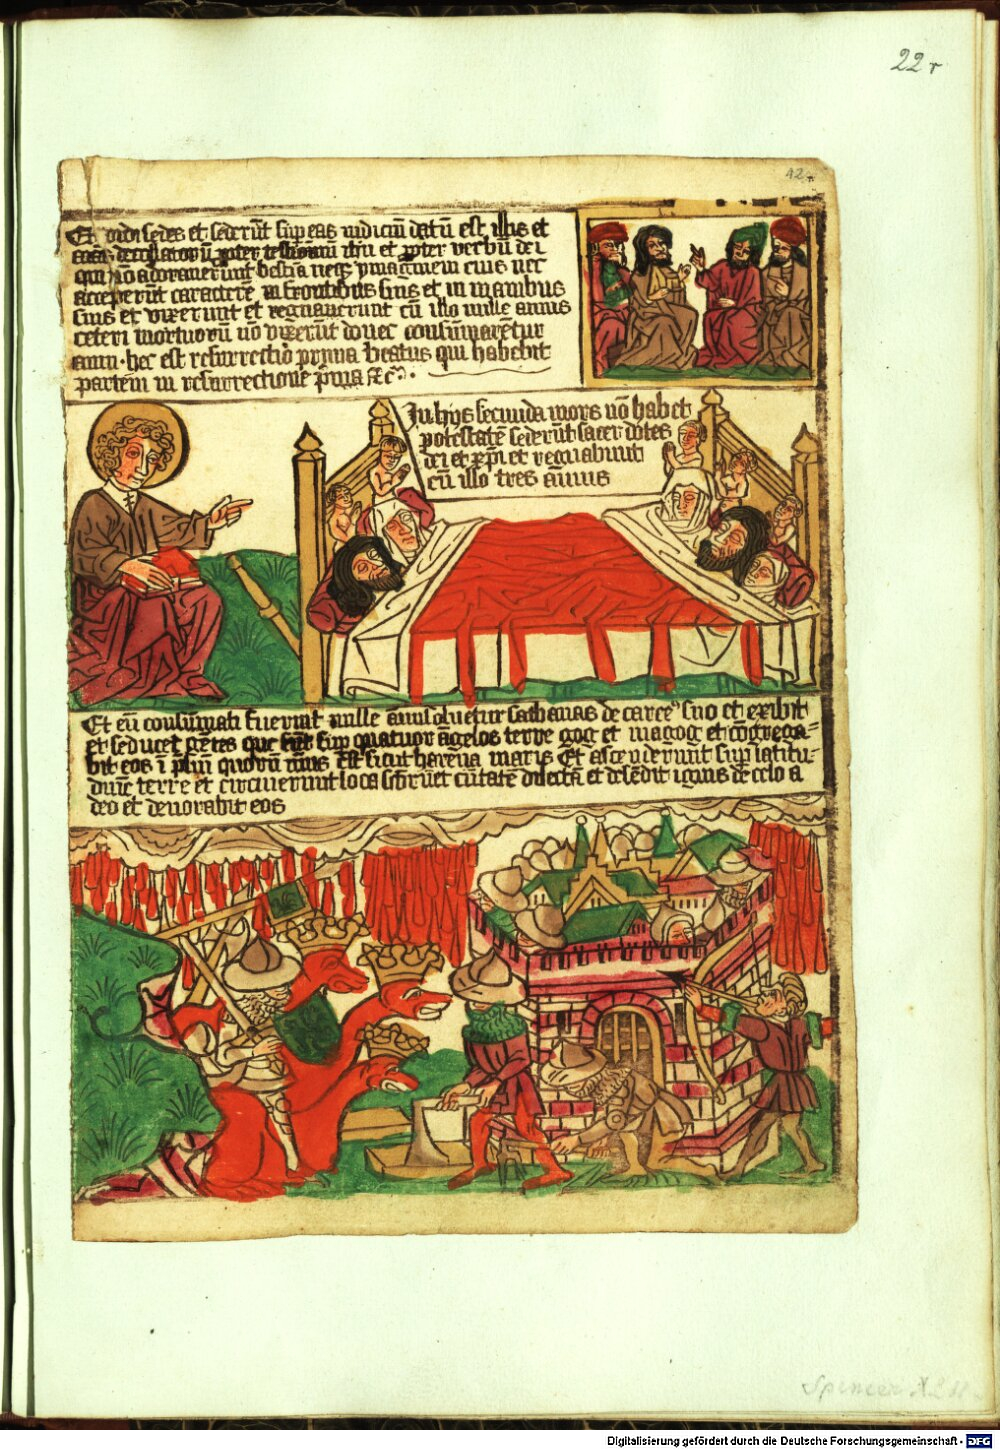 22r
42r
Et vidi sedes et sederūt sup eas iudiciū datū est illis et
aīas decollatorū propter testimoniū ihū et propter verbū dei
qui nō adoraverunt bestiā neqȝ ymaginem eius nec
acceperūt caracterē in frontibus suis et in manibus
suis et vixerunt et regnaverunt cū illo mille annis
ceteri mortuorū nō vixerūt donec consūmarētur
anni · hec est resurrectio prima beatus qui habebit
partem in resurrectione p̄ma
In hijs secunda mors nō habet
potestatē sederūt sacerdotes
dei et xp̄i et regnabunt
cū illo tres annis
Et cū consūmati fuerint mille anni soluetur sathanas de carcē suo et exibit
et seducet gētes que sūt sup quatuor āgelos terre gog et magog et cōgrega-
bit eos ī p̄liū quorū nūus est sicut harena maris Et ascenderunt sup latitu-
dinē terre et circuierunt loca et ciuitatē dilectā et desēdit ignis de celo a
deo et devorabit eos
Spencer
Digitalisierung gefördert durch die Deutsche Forschungsgemeinschaft - DFG